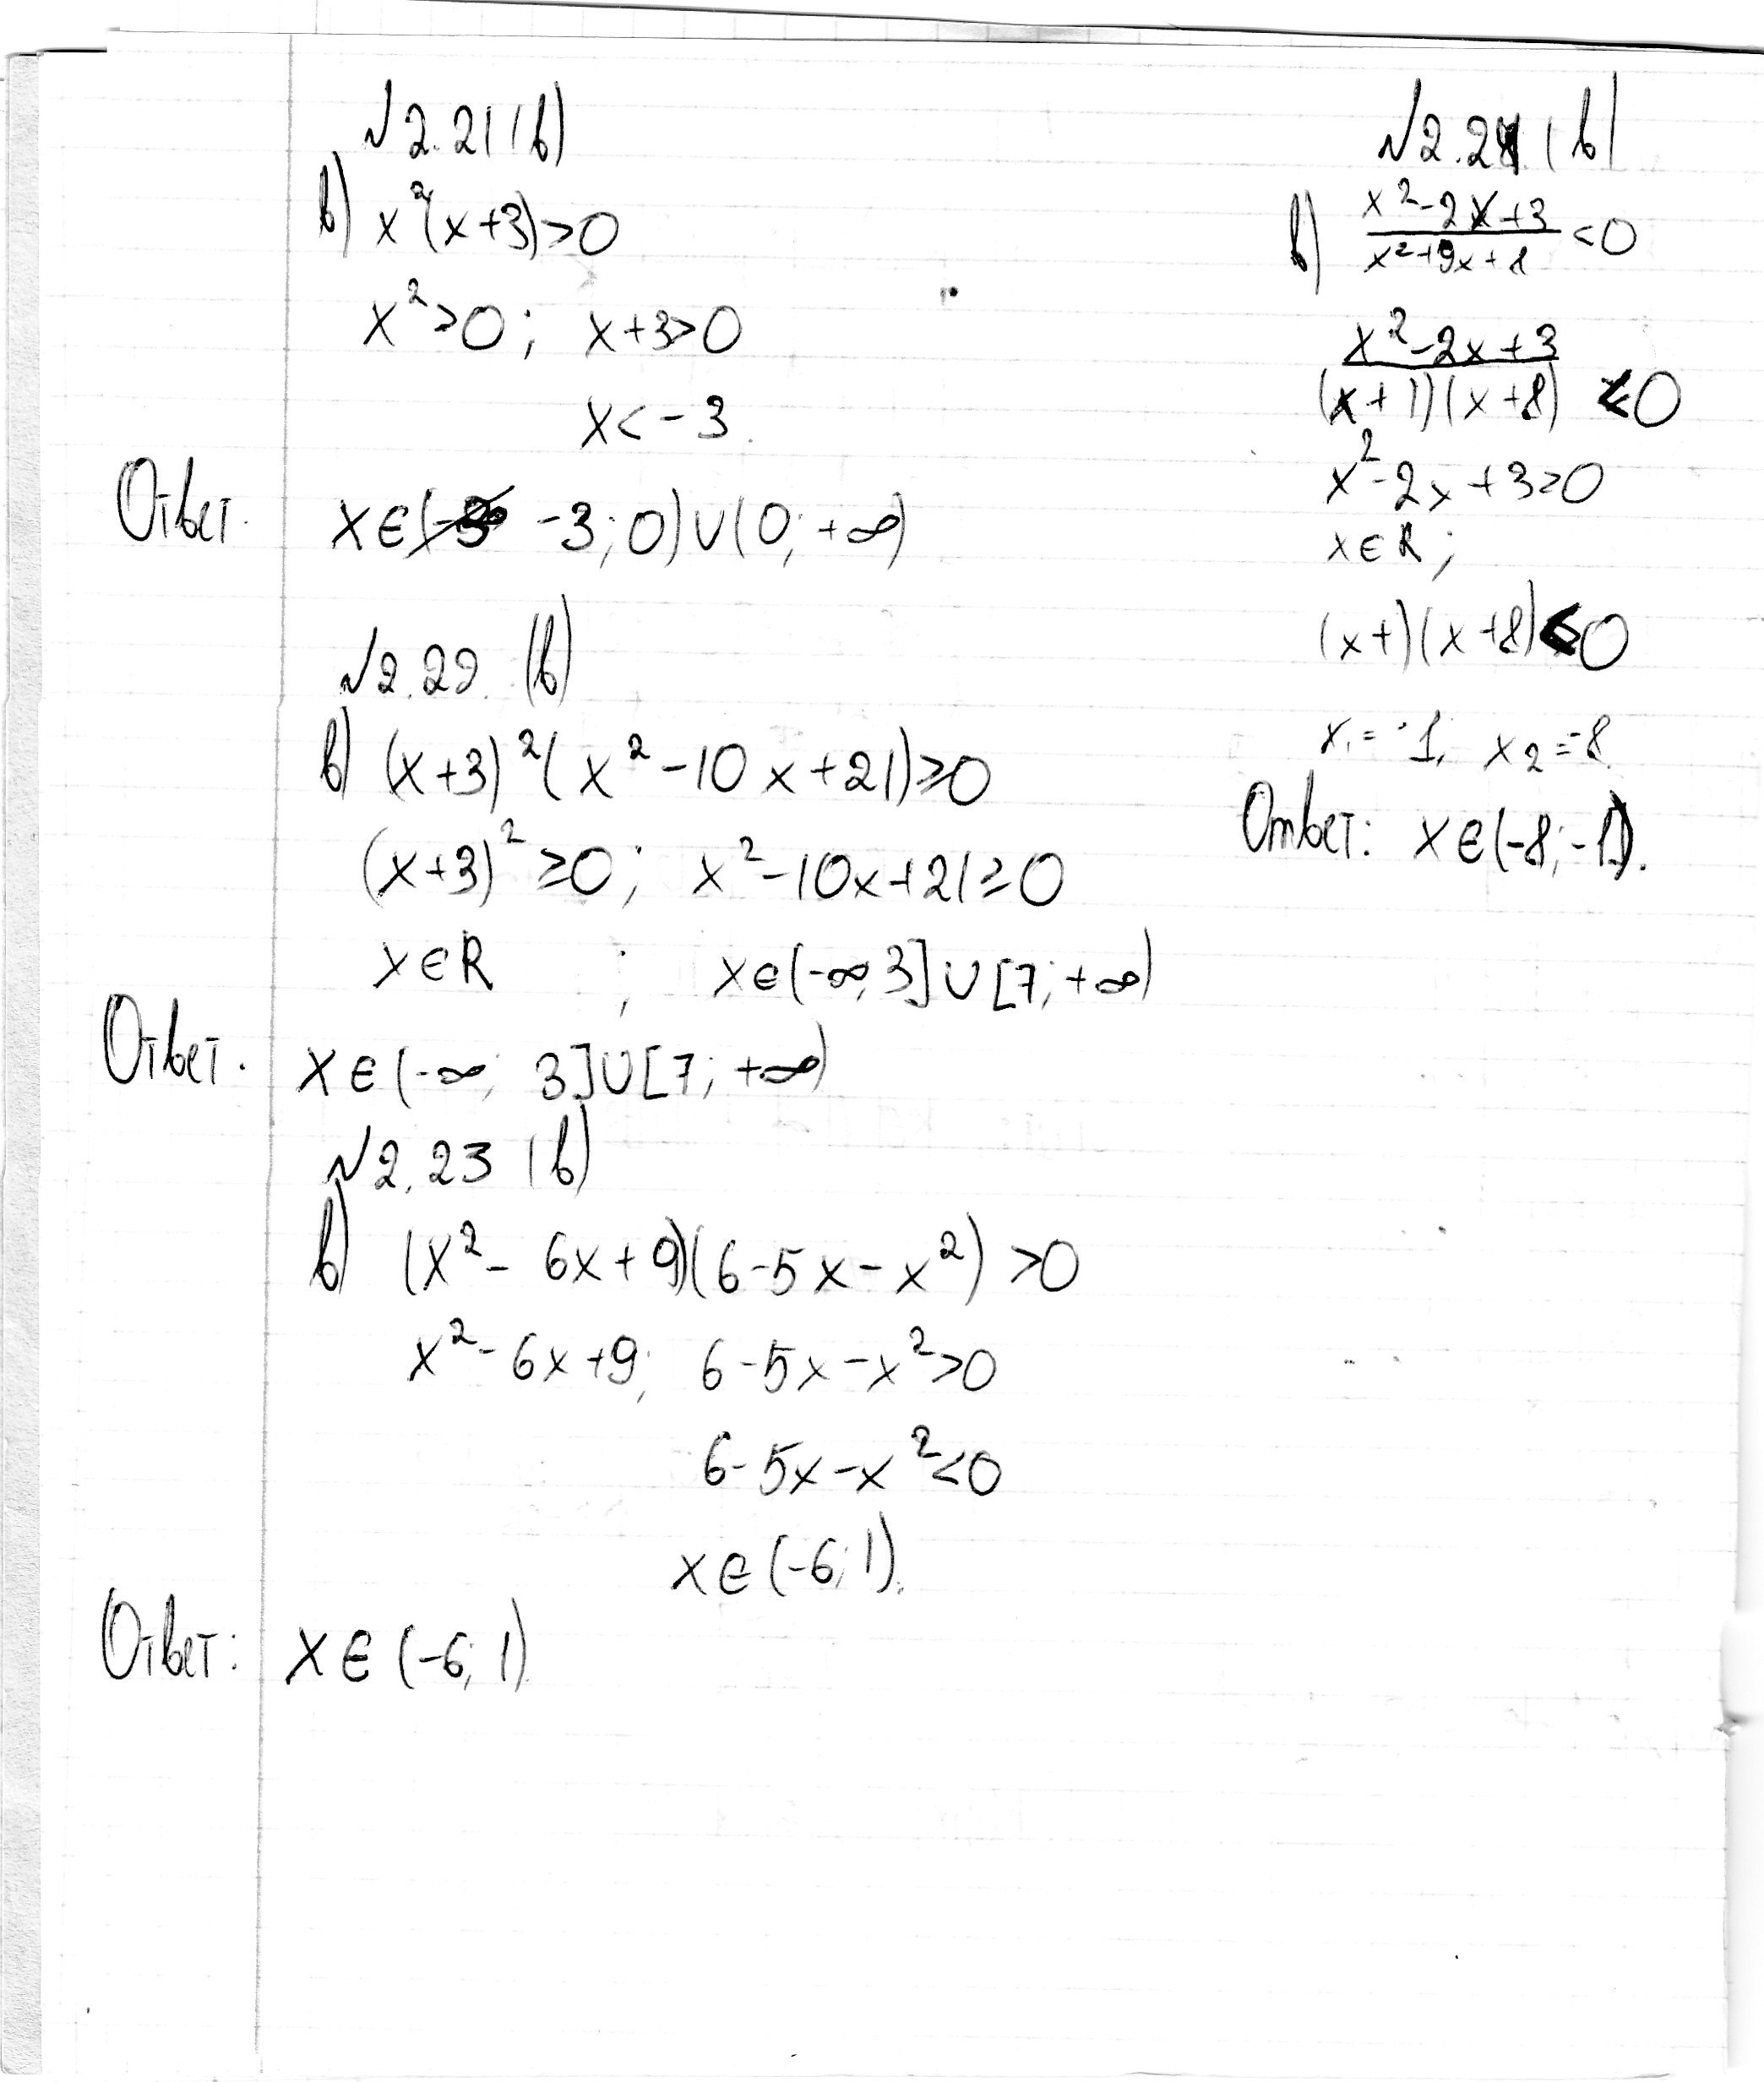 №2.21(в)
в) x²(x+3)>0
x²>0; x+3>0
x<-3.
Ответ. x∈( -3; 0)∪(0; +∞)
№2.22. (в)
в) (x+3)²(x²-10x+21)≥0
(x+3)²≥0; x²-10x+21≥0
x∈R ; x∈(-∞;3]∪[7;+∞)
Ответ. x∈(-∞; 3]∪[7; +∞)
№2.23 (в)
в) (x²- 6x+9)(6-5x-x²)>0
x²-6x+9; 6-5x-x²>0
6-5x-x²<0
x∈(-6;1).
Ответ: x∈(-6;1)
№2.24(в)
в) (x²-2x+3)/(x²+9x+8) <0
(x²-2x+3)/((x+1)(x+8)) <0
x²-2x+3≥0
x∈R;
(x+)(x+8)<0
x₁=-1; x₂=-8.
Ответ: x∈(-8;-1).